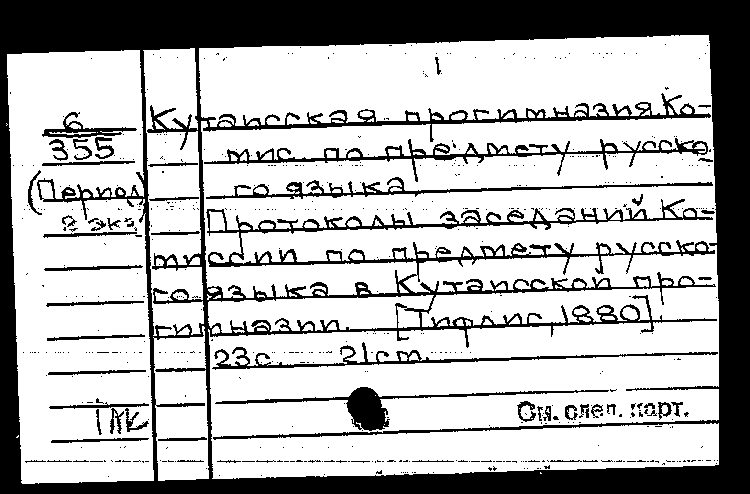 1
6
355
(Период)
2 экз.
Кутаисская прогимназия. Ко-
мис. по предмету русско
го языка.
Протоколы заседаний Ко-
миссии по предмету русско-
го языка в Кутаисской про-
гимназии. [Тифлис, 1880].
23с. 21cm.
См. след. карт.